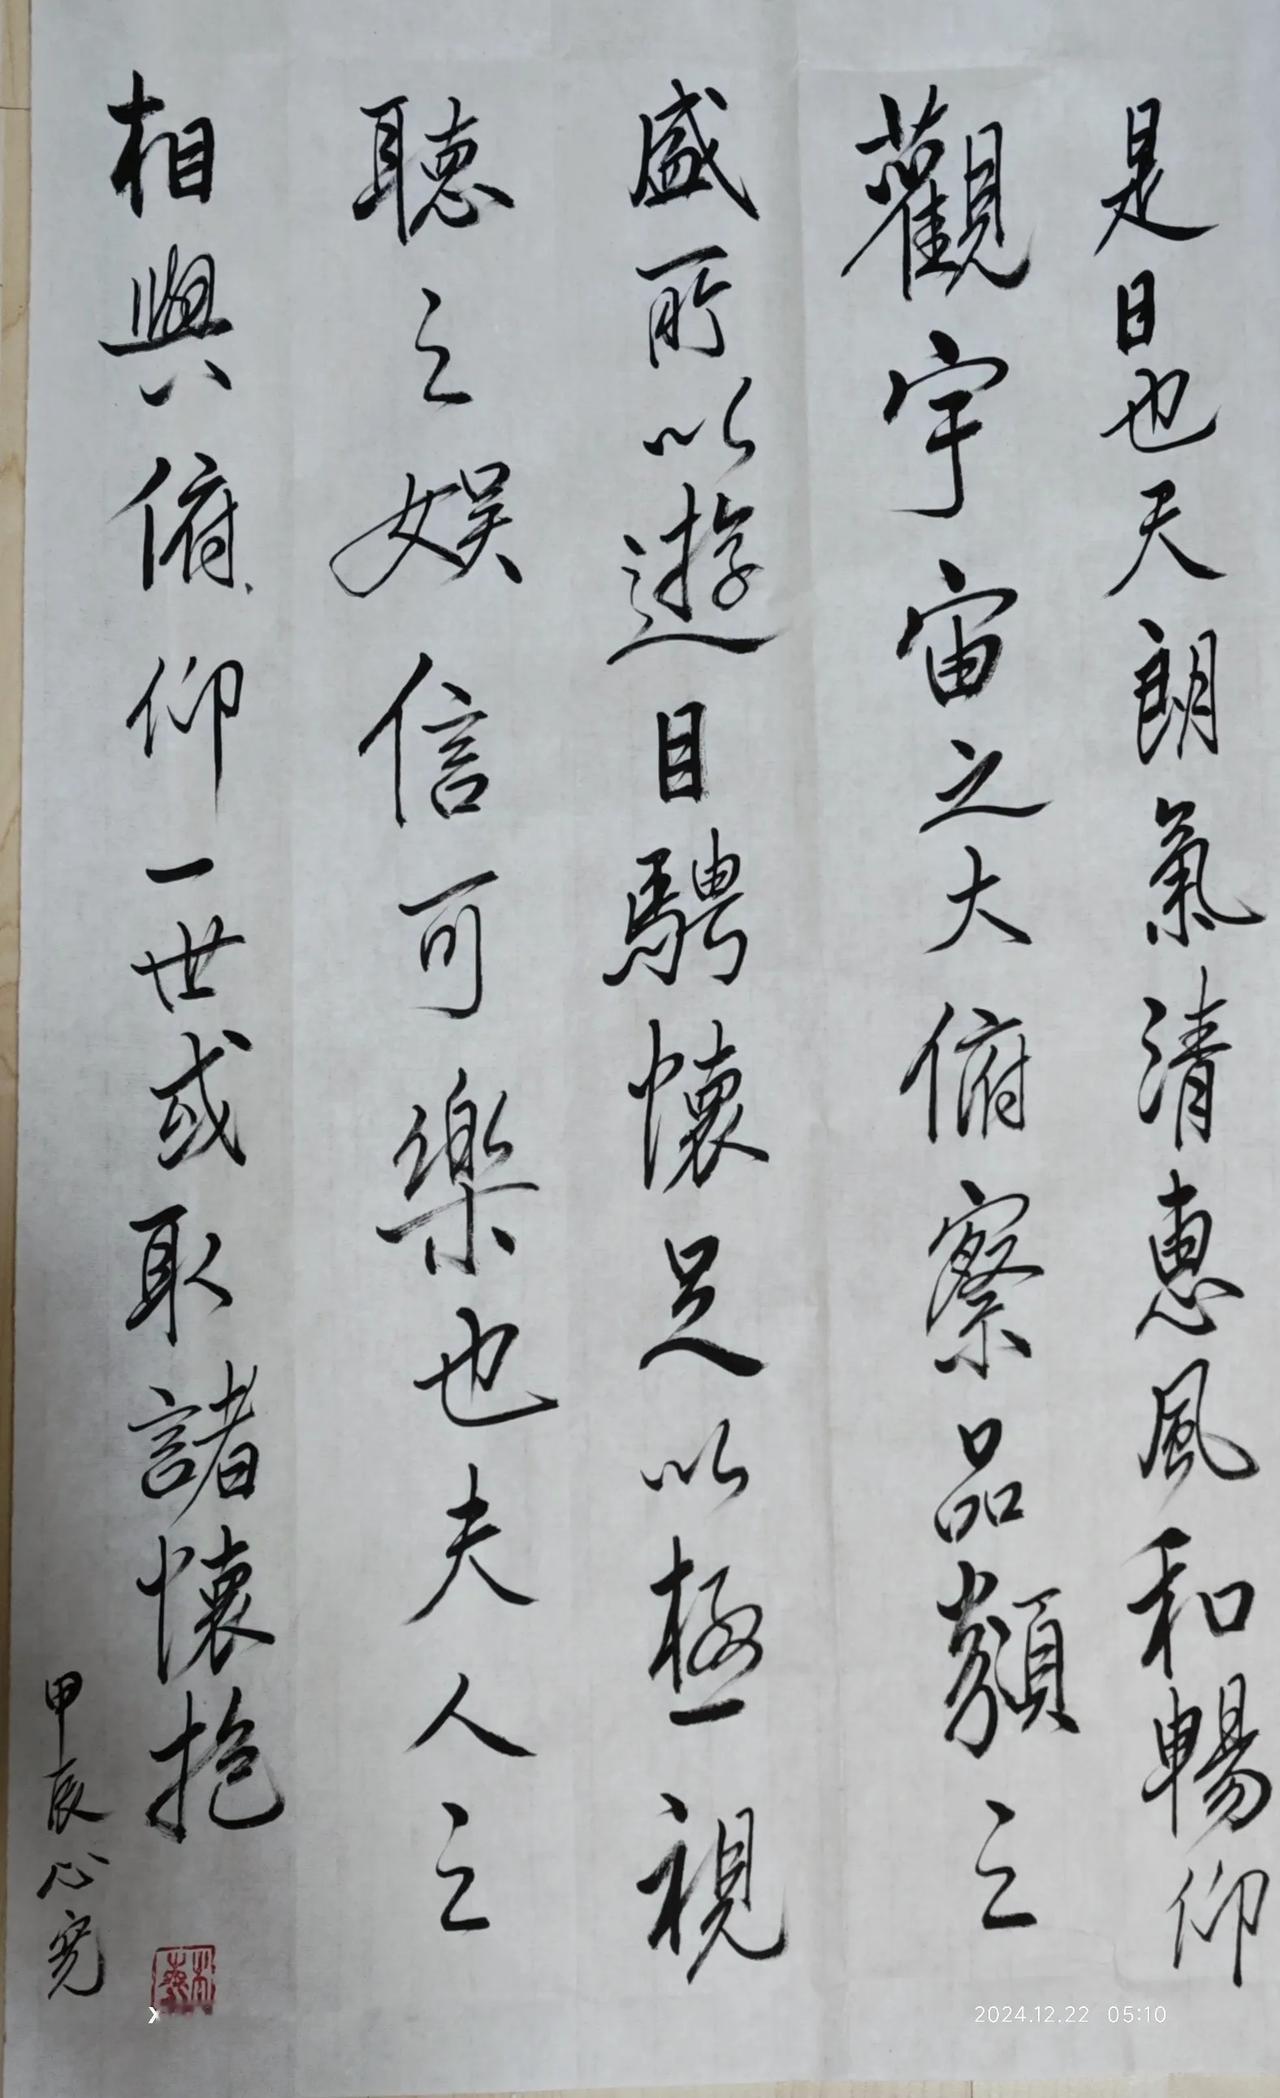 是日也天朗氣清惠風和暢仰
觀宇宙之大俯察品類之
盛所以遊目騁懷足以極視
聽之娛信可樂也夫人之
相與俯仰一世或取諸懷抱
甲辰心寬
2024.12.22 05:10